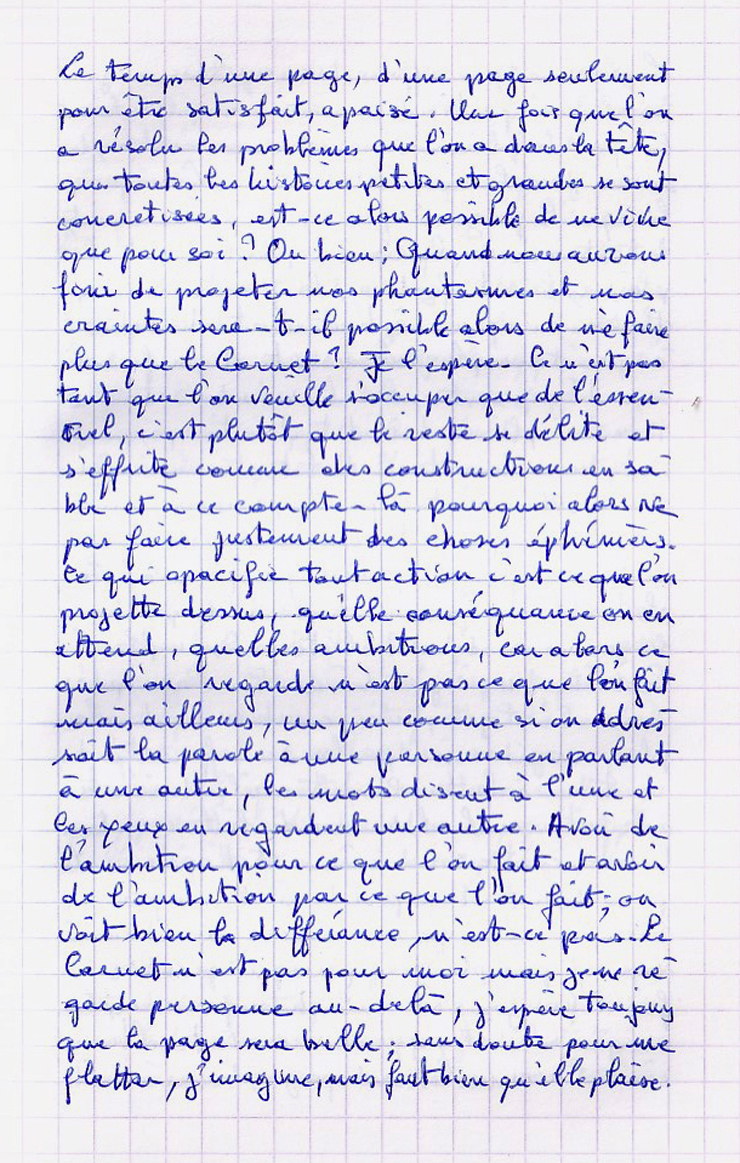 Le temps d'une page, d'une page seulement
pour être satisfait, apaisé. Une fois que l'on
a résolu les problèmes que l'on a dans la tête,
que toutes les histoires petites et grandes se sont
concretisées, est-ce alors possible de ne vivre
que pour soi ? Ou bien ; Quand nous aurons
fini de projeter nos phantasmes et nos
craintes sera-t-il possible alors de ne faire
plus que le Carnet ? Je l'espère. Ce n'est pas
tant que l'on veuille s'occuper que de l'éssen-
tiel, c'est plutôt que le reste se délite et
s'effrite comme des constructions en sa-
ble et à ce compte-là pourquoi alors ne
pas faire justement des choses éphémères.
Ce qui opacifie tout action c'est ce que l'on
projette dessus, quelle conséquance on en
attend, quelles ambitions, car alors ce
que l'on regarde n'est pas ce que l'on fait
mais ailleurs, un peu comme si on adres-
sait la parole à une personne en parlant
à une autre, les mots disent à l'une et
les yeux en regardent une autre. Avoir de
l'ambition pour ce que l'on fait et avoir
de l'ambition par ce que l'on fait ; on
voit bien la différance, n'est-ce pas. Le
Carnet n'est pas pour moi mais je ne re-
garde personne au-delà, j'espère toujours
que la page sera belle ; sans doute pour me
flatter, j'imagine, mais faut bien qu'elle plaise.